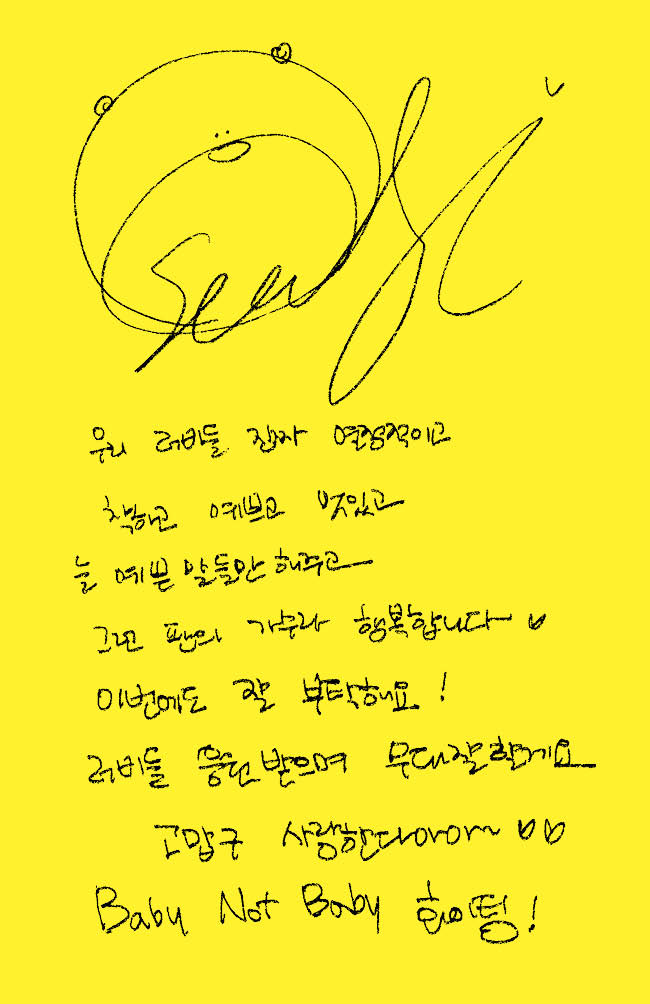 Seulgi
우리 러비들 진짜 열정적이고
착하고 예쁘고 멋있고
늘 예쁜 말들만 해주고
그런 팬의 가수라 행복합니다~
이번에도 잘 부탁해요!
러비들 응원 받으며 무대잘할게요
고맙구 사랑한다아아~
Baby Not Baby 화이띵!